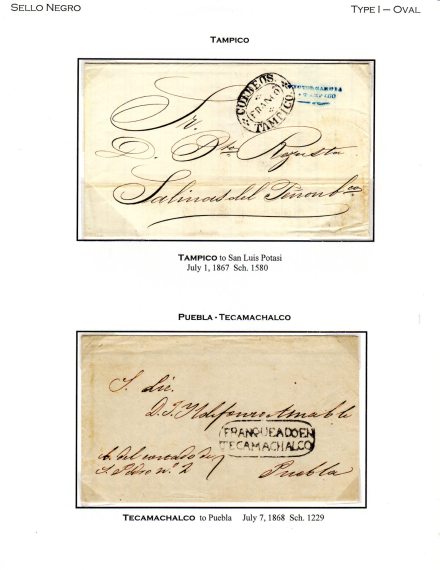 SELLO NEGRO
TYPE I – OVAL
TAMPICO
CORREOS.
FRANCO
TAMPICO.
VICTOR GARCIA
TAMPICO
Sr.
D. Bto
Salinas del Peñon Bco
TAMPICO to San Luis Potasi
July 1, 1867 Sch. 1580
PUEBLA - TECAMACHALCO
S. Lic.
D. J. Ildefonso Amable
FRANQUEADO EN
TECAMACHALCO
A. del cercado de
S. Pedro nº 2
Puebla
TECAMACHALCO to Puebla July 7, 1868 Sch. 1229